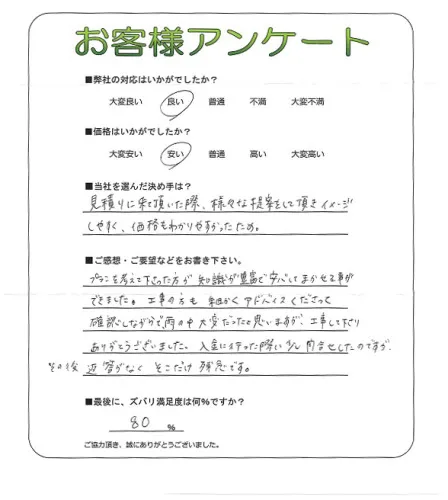 お客様アンケート
■弊社の対応はいかがでしたか？
大変良い 良い 普通 不満 大変不満
■価格はいかがでしたか？
大変安い 安い 普通 高い 大変高い
■当社を選んだ決め手は？
見積りに来て頂いた際、様々な提案をして頂きイメージ
しやすく、価格もわかりやすかったため。
■ご感想・ご要望などをお書き下さい。
プランを考えて下さった方が知識が豊富で安心してまかせる事が
できました。工事の方も細かくアドバイスくださって
確認しながらで、雨の中大変だったと思いますが、工事して下さり
ありがとうございました。入金に行った際に 問合せしたのですが、
その後 返答がなく そこだけ残念です。
■最後に、ズバリ満足度は何%ですか？
80 %
ご協力頂き、誠にありがとうございました。